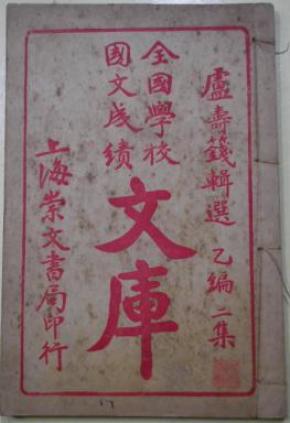 盧壽籛輯選 乙編 二集
全國學校
國文成績
文庫
上海崇文書局印行